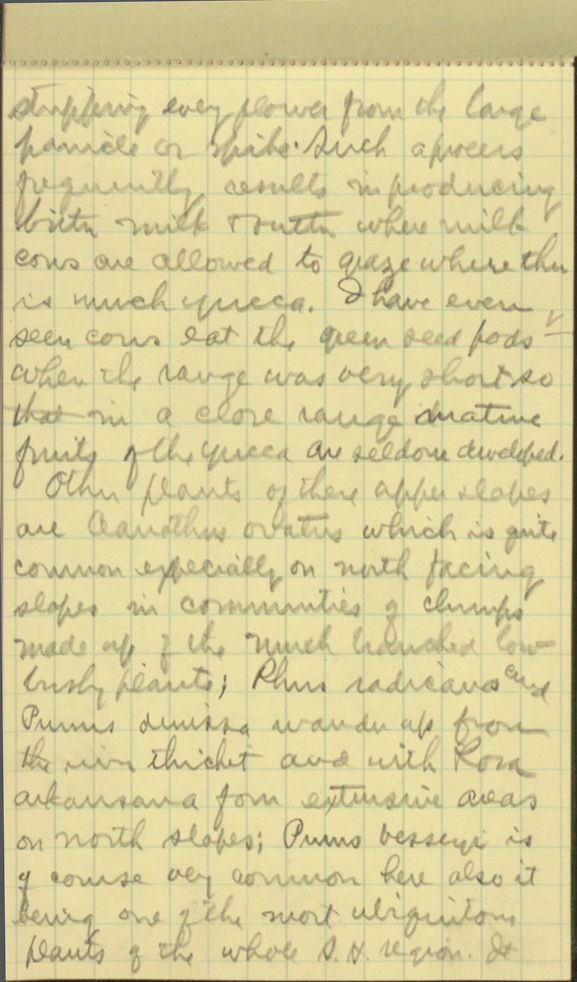 stripping every flower from the large
panicle or spike. Such a process
frequently results in producing
bitter milk & butter where milk
cows are allowed to graze where there
is much yucca. I have even
seen cows eat the green seed pods
when the range was very short so
that in a close range mature
fruits of the yucca are seldom developed.
Other plants of these upper slopes
are Ceanothus ovatus which is quite
common especially on north facing
slopes in communities of clumps
made up of the much branched low
bushy plants; Rhus radicans and
Prunus demissa wander up from
the river thicket and with Rosa
arkansana form extensive areas
on north slopes; Prunus besseyi is
of course very common here also it
being one of the most ubiquitous
plants of the whole S.H. region. It